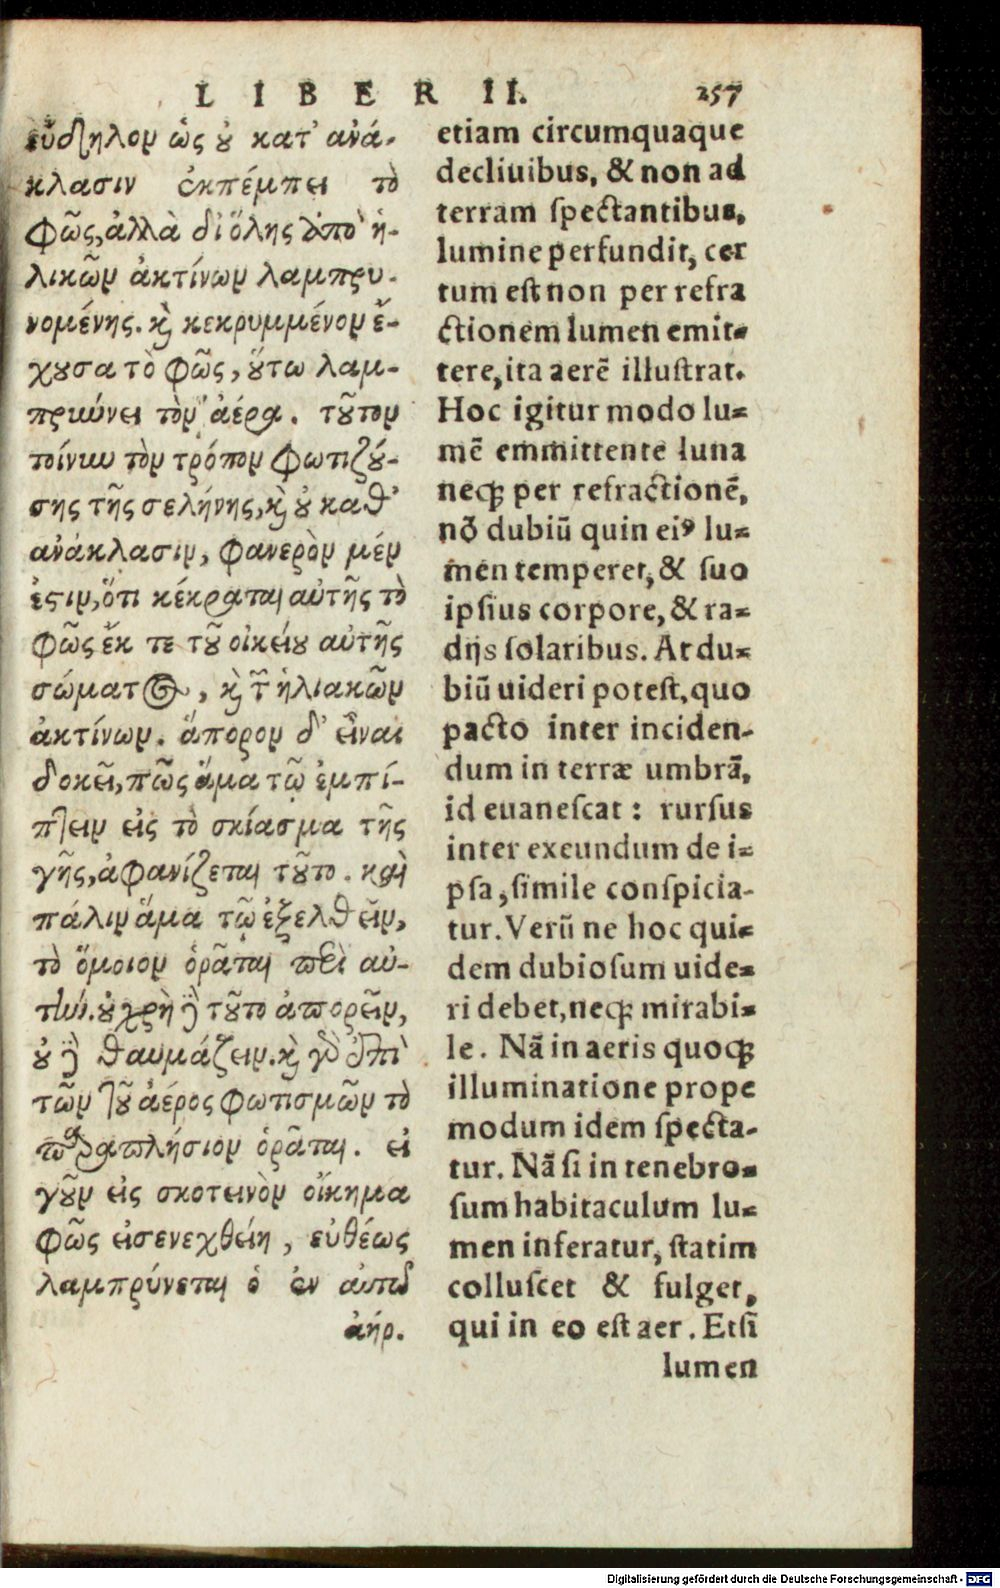 LIBER II. 257
εὔδηλον ὡς ȣ κατ' ἀνά-
κλασιν ἐκπέμπει τὸ
φῶς, ἀλλὰ δι' ὅλης ὑπὸ ἡ-
λικῶν ἀκτίνων λαμπρυ-
νομένης. κὴ κεκρυμμένον ἔ-
χȣσα τὸ φῶς, ȣ̔́τω λαμ-
πρύνει τὸν ἀέρα. τȣ͂τον
τοίνυν τὸν τρόπον φωτιζȣ́-
σης τῆς σελήνης, κὴ ȣ̓ καθ'
ἀνάκλασιν, φανερὸν μέν
ἐστιν, ὅτι κέκραται αὐτῆς τὸ
φῶς ἔκ τε τȣ͂ οἰκείȣ αὐτῆς
σώματος, κὴ τῶν ἡλιακῶν
ἀκτίνων. ἄπορον δ' εἶναι
δοκεῖ, πῶς ἅμα τῷ ἐμπί-
πτειν εἰς τὸ σκίασμα τῆς
γῆς, ἀφανίζεται τȣ͂το. καὶ
πάλιν ἅμα τῷ ἐξελθεῖν,
τὸ ὅμοιον ὁρᾶται περὶ αὐ-
τήν. ȣ̓ χρὴ δὲ τȣ͂το ἀπορεῖν,
ȣ̓ δὲ θαυμάζειν. κὴ γὸ ἐπὶ
τῶν τȣ͂ ἀέρος φωτισμῶν τὸ
παραπλήσιον ὁρᾶται. εἰ
γȣ͂ν εἰς σκοτεινὸν οἴκημα
φῶς εἰσενεχθείη, εὐθέως
λαμπρύνεται ὁ ἐν αὐτῷ
ἀήρ.
etiam circumquaque
decliuibus, & non ad
terram spectantibus,
lumine perfundit, cer
tum est non per refra
ctionem lumen emit=
tere, ita aerē illustrat.
Hoc igitur modo lu=
mē emmittente luna
neqꝫ per refractionē,
nō dubiū quin eiꝰ lu=
men temperet, & suo
ipsius corpore, & ra=
dijs solaribus. At du=
biū uideri potest, quo
pacto inter inciden-
dum in terræ umbrā,
id euanescat : rursus
inter exeundum de i=
psa, simile conspicia-
tur. Verū ne hoc qui=
dem dubiosum uide=
ri debet, neqꝫ mirabi=
le. Nā in aeris quoqꝫ
illuminatione prope
modum idem specta-
tur. Nā si in tenebro=
sum habitaculum lu=
men inferatur, statim
colluscet & fulget,
qui in eo est aer. Etsi
lumen
Digitalisierung gefördert durch die Deutsche Forschungsgemeinschaft - DFG